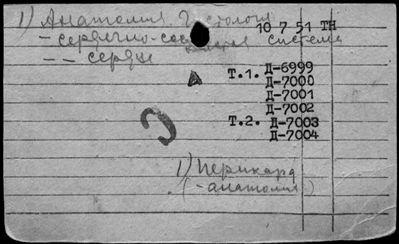 1) Анатомия Гистология
10 7 51 ТН
- сердечно-сосудистая система
-- сердце
Т.1. Д-6999
Д-7000
Д-7001
Д-7002
Т.2. Д-7003
Д-7004
1) Перикард
(-анатомия)